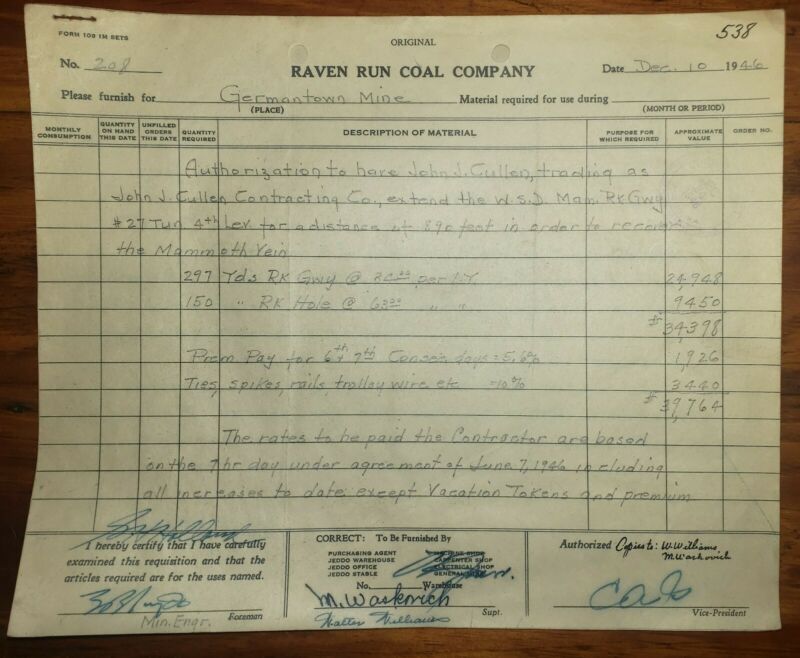 FORM 100 IM SETS
538
ORIGINAL
No. 208
RAVEN RUN COAL COMPANY
Date Dec. 10 1946
Please furnish for Germantown Mine Material required for use during
(PLACE) (MONTH OR PERIOD)
MONTHLY CONSUMPTION
QUANTITY ON HAND THIS DATE
UNFILLED ORDERS THIS DATE
QUANTITY REQUIRED
DESCRIPTION OF MATERIAL
PURPOSE FOR WHICH REQUIRED
APPROXIMATE VALUE
ORDER NO.
Authorization to have John J. Cullen, trading as
John J. Cullen Contracting Co., extend the W.S.D. Mam. Rk Gwy
#27 Tun 4th Lev for a distance of 890 feet in order to recover
the Mammoth Vein
297 Yds Rk Gwy @ 84.00 per LY 24,948
150 " Rk Hole @ 63.00 " " 9450
$34,398
Prem Pay for 6th & 7th Consec. days = 5.6% 1,926
Ties, spikes, rails, trolley wire etc =10% 3440
$39,764
The rates to be paid the Contractor are based
on the 7 hr day under agreement of June 7, 1946 including
all increases to date except Vacation Tokens and premium
I hereby certify that I have carefully
examined this requisition and that the
articles required are for the uses named.
Min. Engr. Foreman
CORRECT: To Be Furnished By
PURCHASING AGENT MACHINE SHOP
JEDDO WAREHOUSE CARPENTER SHOP
JEDDO OFFICE ELECTRICAL SHOP
JEDDO STABLE GENERAL
No. Warehouse
M. Waskovich
Supt.
Walter Williams
Authorized Copies to: W. Williams
M. Waskovich
Vice-President